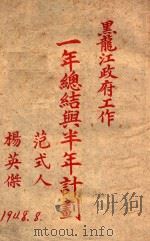 黑龍江政府工作
一年總結與半年計劃
范式人
楊英傑
1948.8.